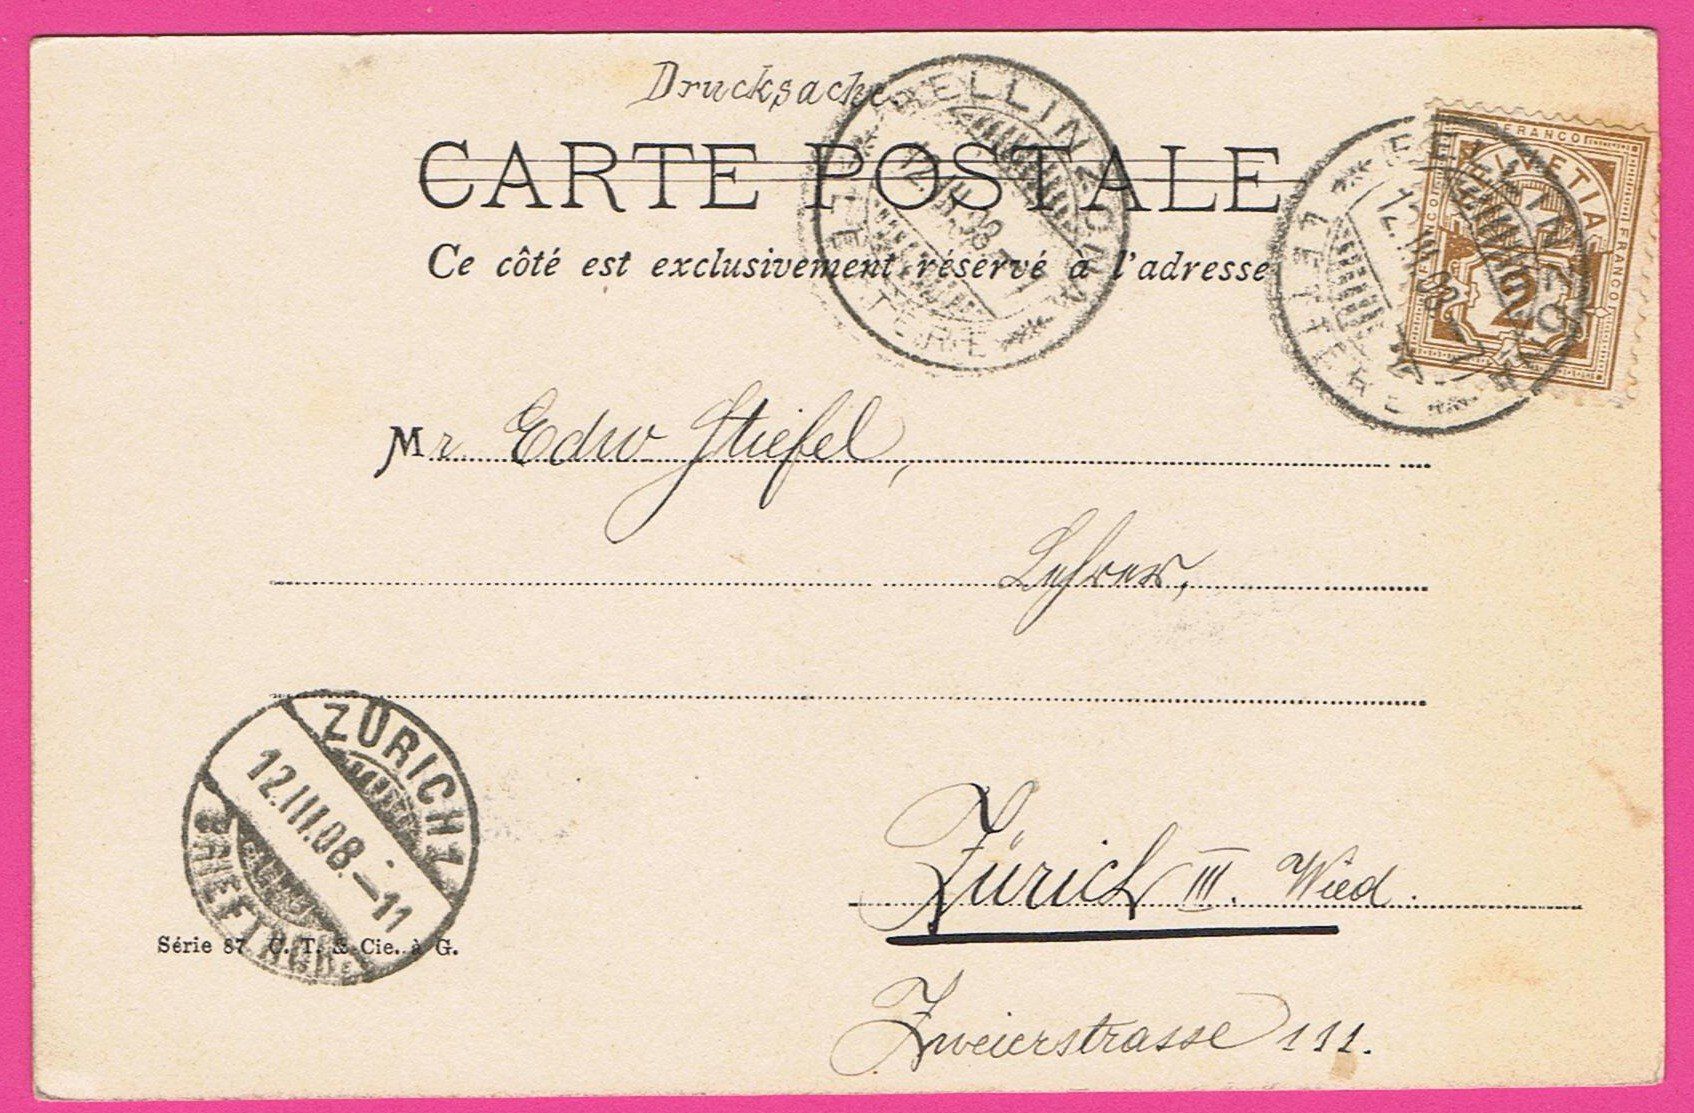 Drucksache
CARTE POSTALE
Ce côté est exclusivement réservé à l'adresse
BELLINZONA
LETTERE
12.III.08
BELLINZONA
LETTERE
12.III.08
FRANCO
HELVETIA
FRANCO
2
Mr. Edw Stiefel,
Lehrer,
ZÜRICH 1
12.III.08.–11
BRIEFTRÄGER
Zürich III. Wied.
Série 87 C. T. & Cie. à G.
Zweierstrasse 111.